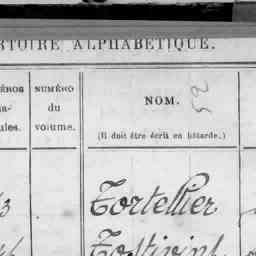 RTOIRE ALPHABÉTIQUE.
ÉROS
a-
ules.
NUMÉRO
du
volume.
NOM.
(Il doit être écrit en bâtarde.)
52
3
Tortellier
Tostivint